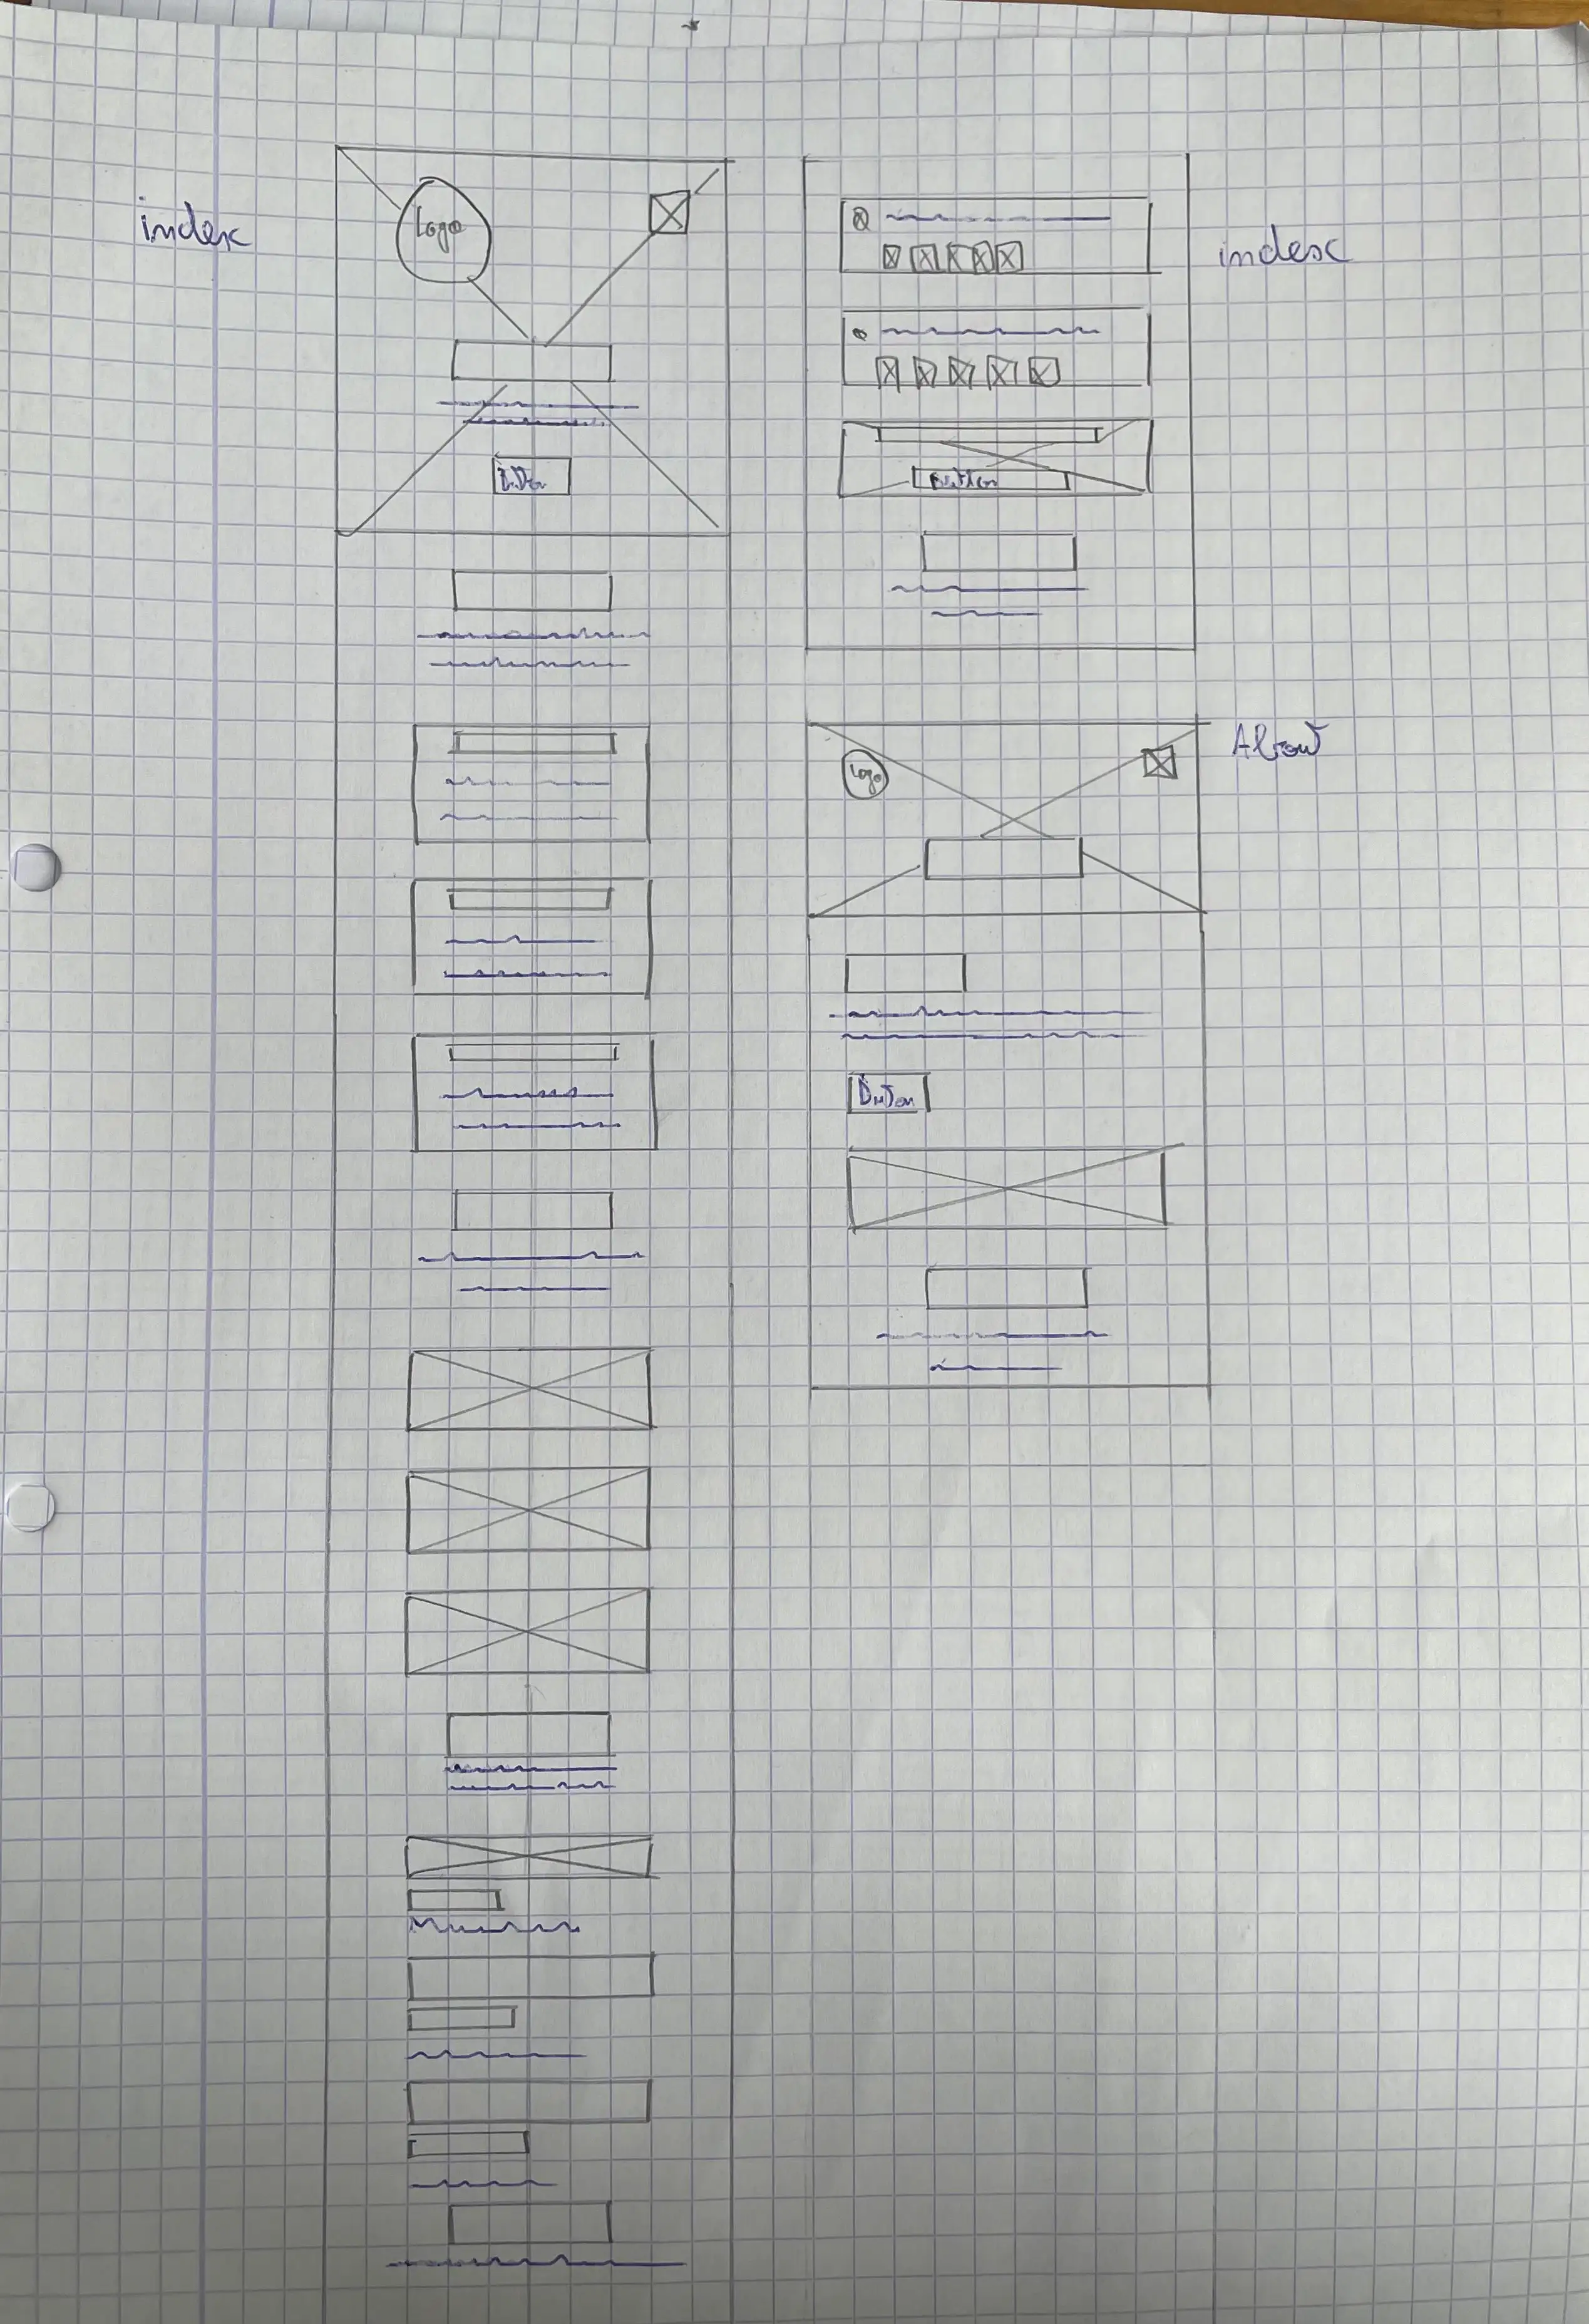 index
Logo
Button
index
Button
About
Logo
Button